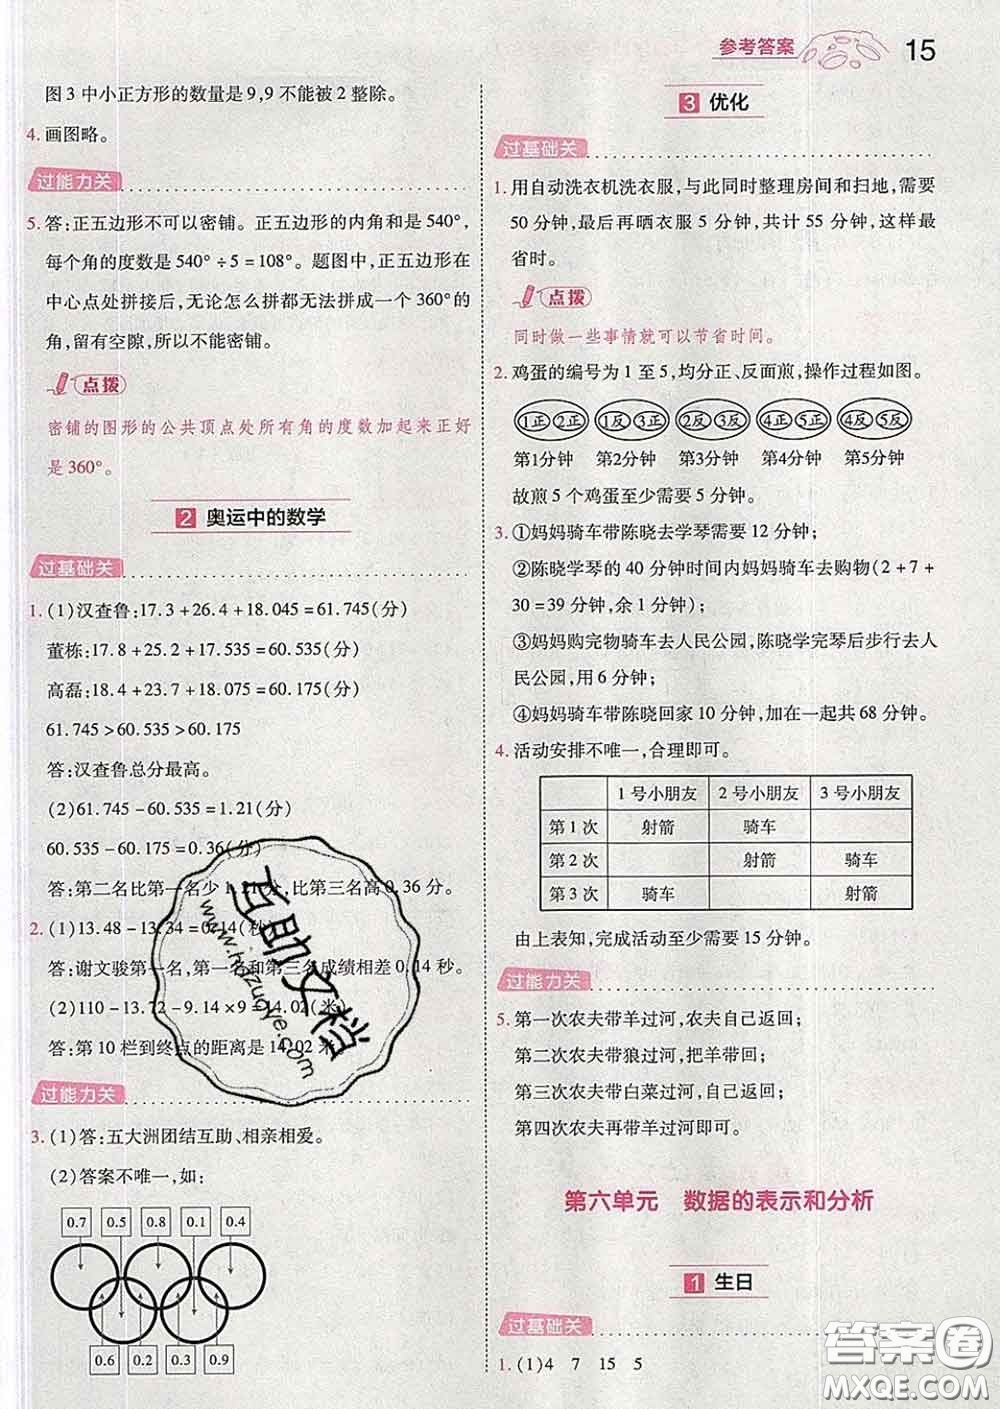 参考答案 15
图 3 中小正方形的数量是 9,9 不能被 2 整除。
4. 画图略。
过能力关
5. 答:正五边形不可以密铺。正五边形的内角和是 540°,
每个角的度数是 540°÷5=108°。题图中,正五边形在
中心点处拼接后,无论怎么拼都无法拼成一个 360°的
角,留有空隙,所以不能密铺。
点拨
密铺的图形的公共顶点处所有角的度数加起来正好
是 360°。
2 奥运中的数学
过基础关
1. (1)汉查鲁:17.3+26.4+18.045=61.745(分)
董栋:17.8+25.2+17.535=60.535(分)
高磊:18.4+23.7+18.075=60.175(分)
61.745>60.535>60.175
答:汉查鲁总分最高。
(2)61.745-60.535=1.21(分)
60.535-60.175=0.36(分)
答:第二名比第一名少 1.21 分,比第三名高 0.36 分。
2. (1)13.48-13.34=0.14(秒)
答:谢文骏第一名,第一名和第三名成绩相差 0.14 秒。
(2)110-13.72-9.14×9=14.02(米)
答:第 10 栏到终点的距离是 14.02 米。
过能力关
3. (1)答:五大洲团结互助、相亲相爱。
(2)答案不唯一,如:
0.7 0.5 0.8 0.1 0.4
0.6 0.2 0.3 0.9
3 优化
过基础关
1. 用自动洗衣机洗衣服,与此同时整理房间和扫地,需要
50 分钟,最后再晒衣服 5 分钟,共计 55 分钟,这样最
省时。
点拨
同时做一些事情就可以节省时间。
2. 鸡蛋的编号为 1 至 5,均分正、反面煎,操作过程如图。
1正 2正 1反 3正 2反 3反 4正 5正 4反 5反
第1分钟 第2分钟 第3分钟 第4分钟 第5分钟
故煎 5 个鸡蛋至少需要 5 分钟。
3. ①妈妈骑车带陈晓去学琴需要 12 分钟;
②陈晓学琴的 40 分钟时间内妈妈骑车去购物(2+7+
30=39 分钟,余 1 分钟)
③妈妈购完物骑车去人民公园,陈晓学完琴后步行去人
民公园,用 6 分钟;
④妈妈骑车带陈晓回家 10 分钟,加在一起共 68 分钟。
4. 活动安排不唯一,合理即可。
1 号小朋友 2 号小朋友 3 号小朋友
第 1 次 射箭 骑车
第 2 次 射箭 骑车
第 3 次 骑车 射箭
由上表知,完成活动至少需要 15 分钟。
过能力关
5. 第一次农夫带羊过河,农夫自己返回;
第二次农夫带狼过河,把羊带回;
第三次农夫带白菜过河,自己返回;
第四次农夫再带羊过河即可。
第六单元 数据的表示和分析
1 生日
过基础关
1. (1)4 7 15 5
互助文档
www.huzuoye.com
答案圈
MXQE.COM